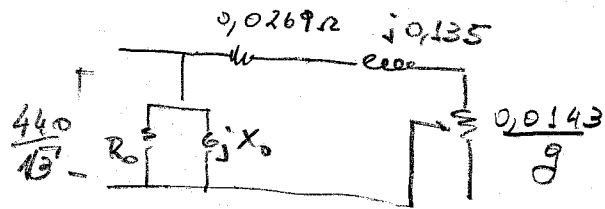 0,0269Ω j0,135
440/√3 R₀ jX₀ 0,0143/g